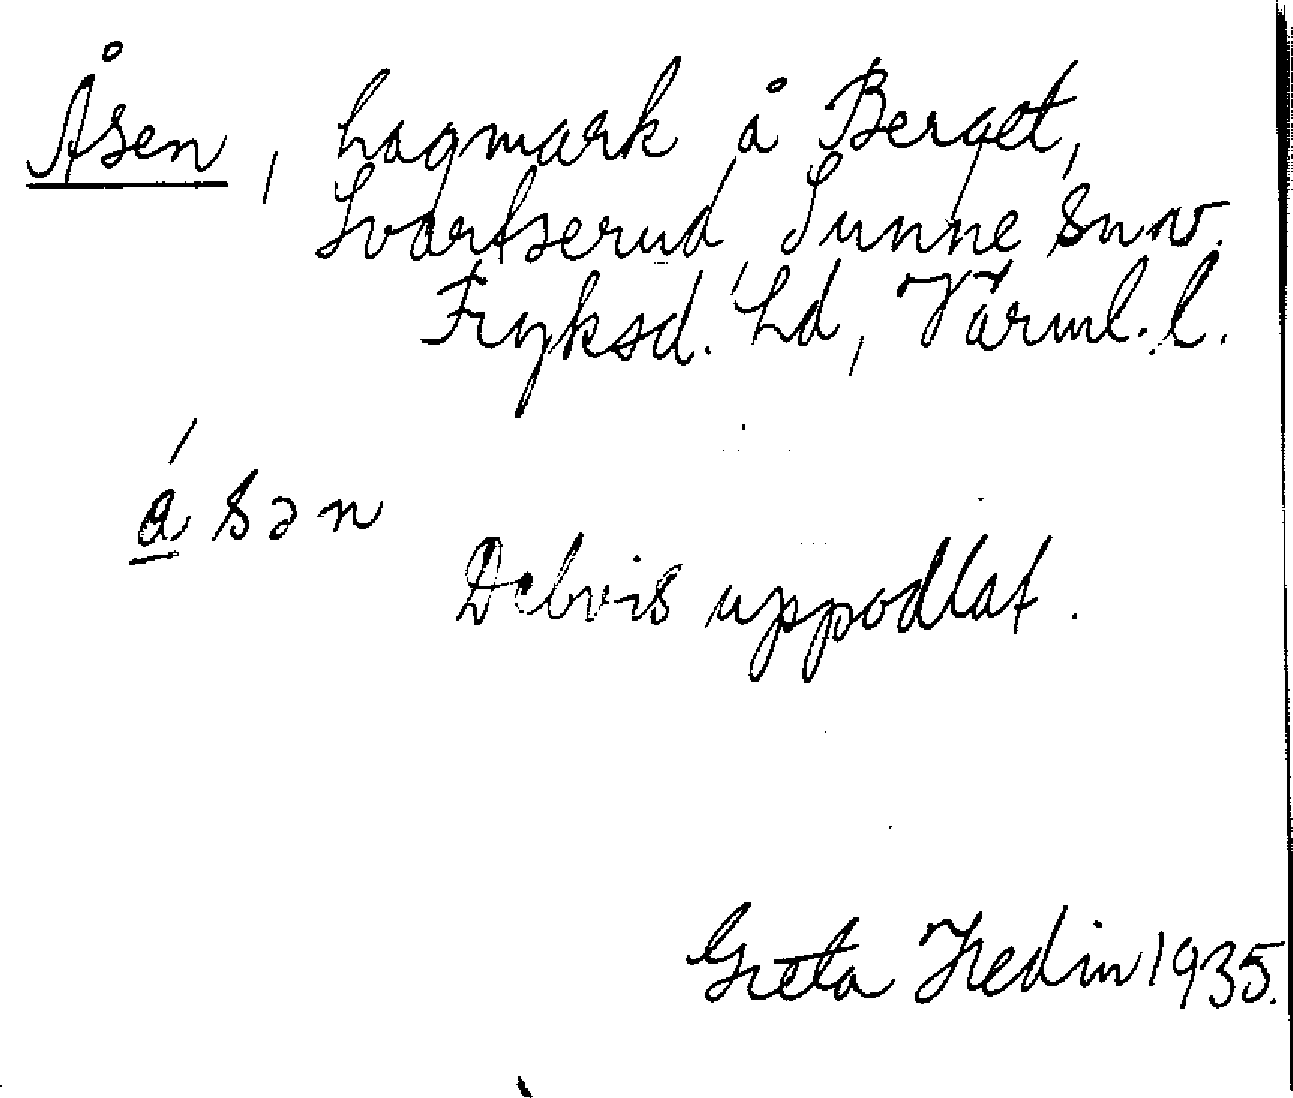 Åsen, hagmark å Berget,
Svartserud, Sunne sn nv.
Fryksd. hd, Värml. l.
ásən
Delvis uppodlat.
Greta Hedin 1935.